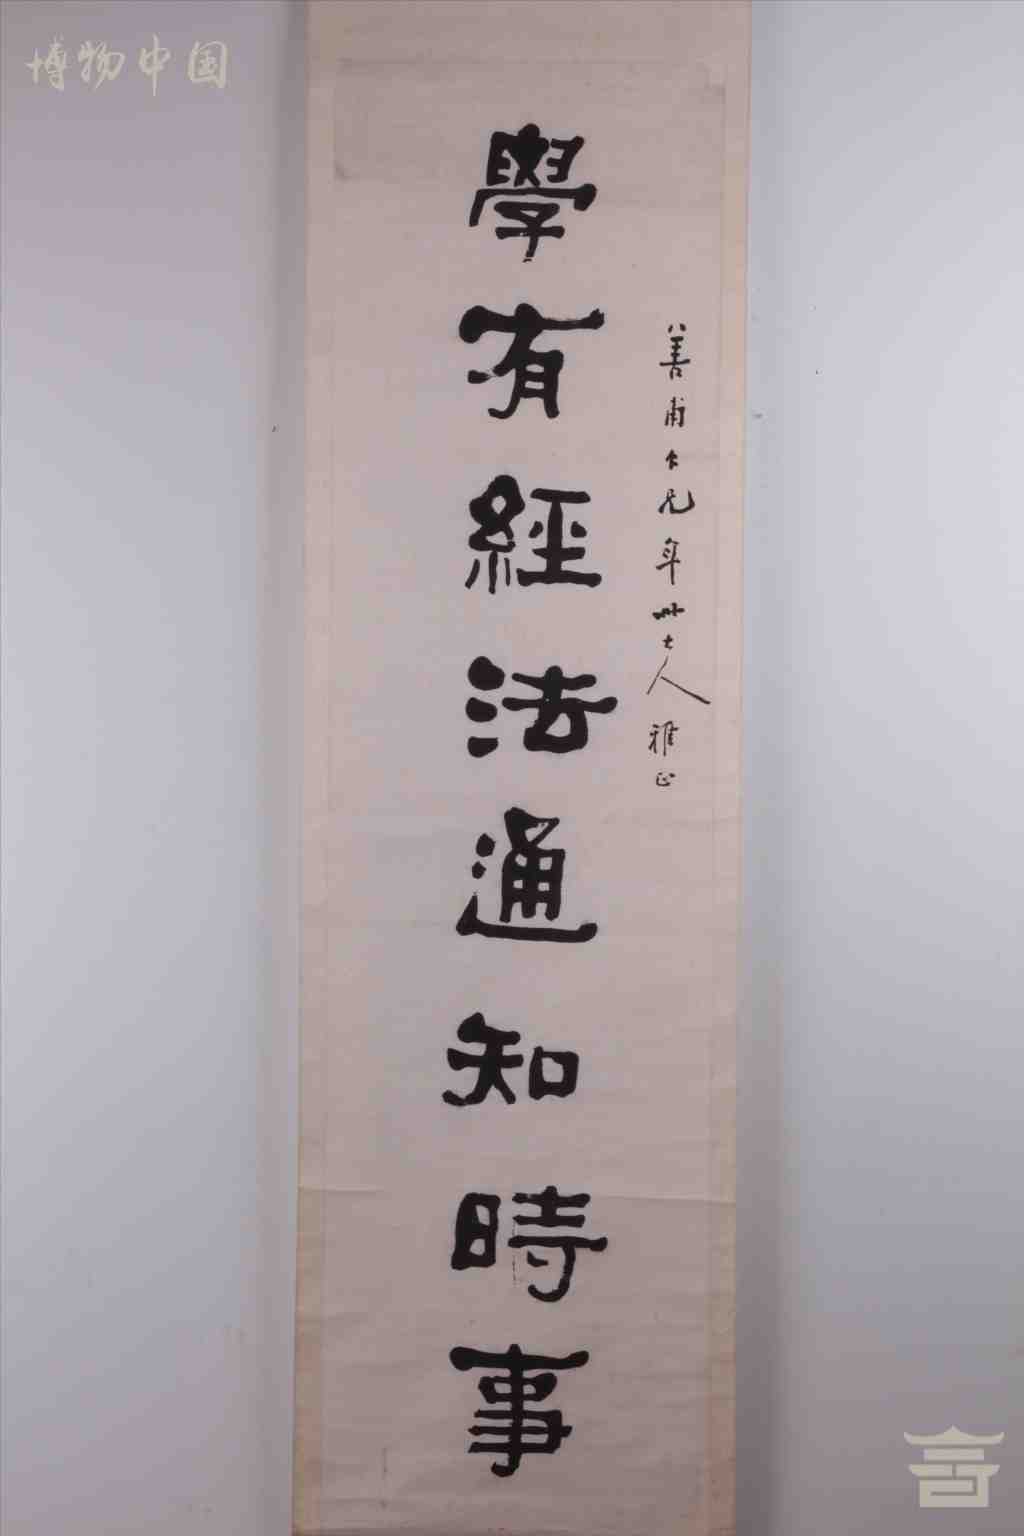 博物中国
善甫大兄年世大人雅正
學有經法通知時事